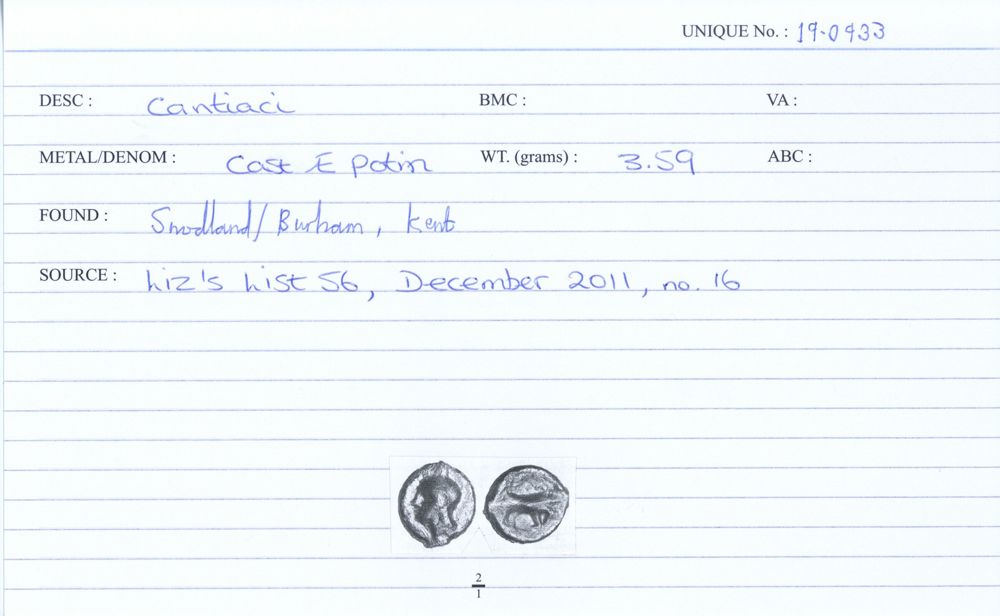 UNIQUE No. : 19-0433
DESC : Cantiaci BMC : VA :
METAL/DENOM : Cast Æ Potin WT. (grams) : 3.59 ABC :
FOUND : Snodland/Burham, Kent
SOURCE : Liz's List 56, December 2011, no. 16
2
1